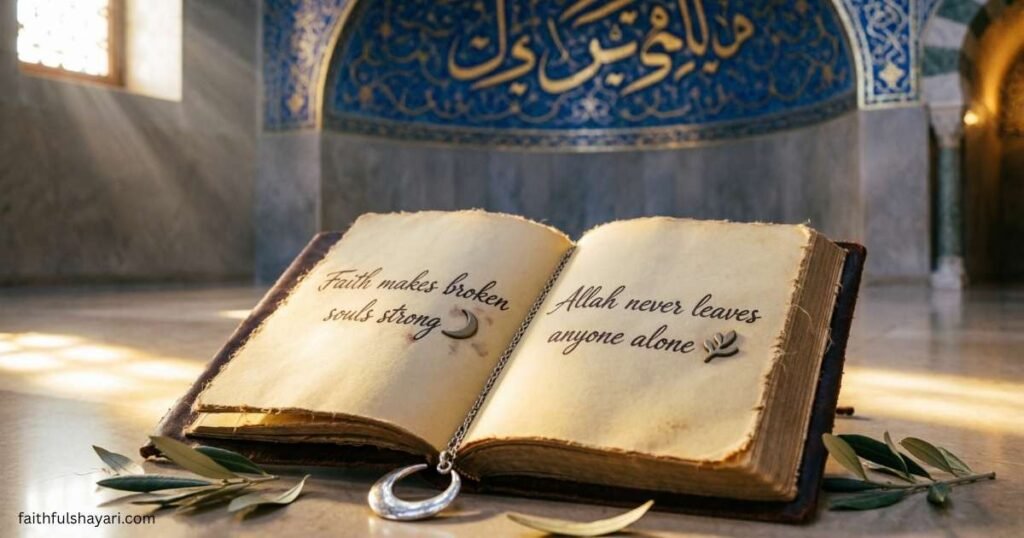 Faith makes broken
souls strong
Allah never leaves
anyone alone
faithfulshayari.com